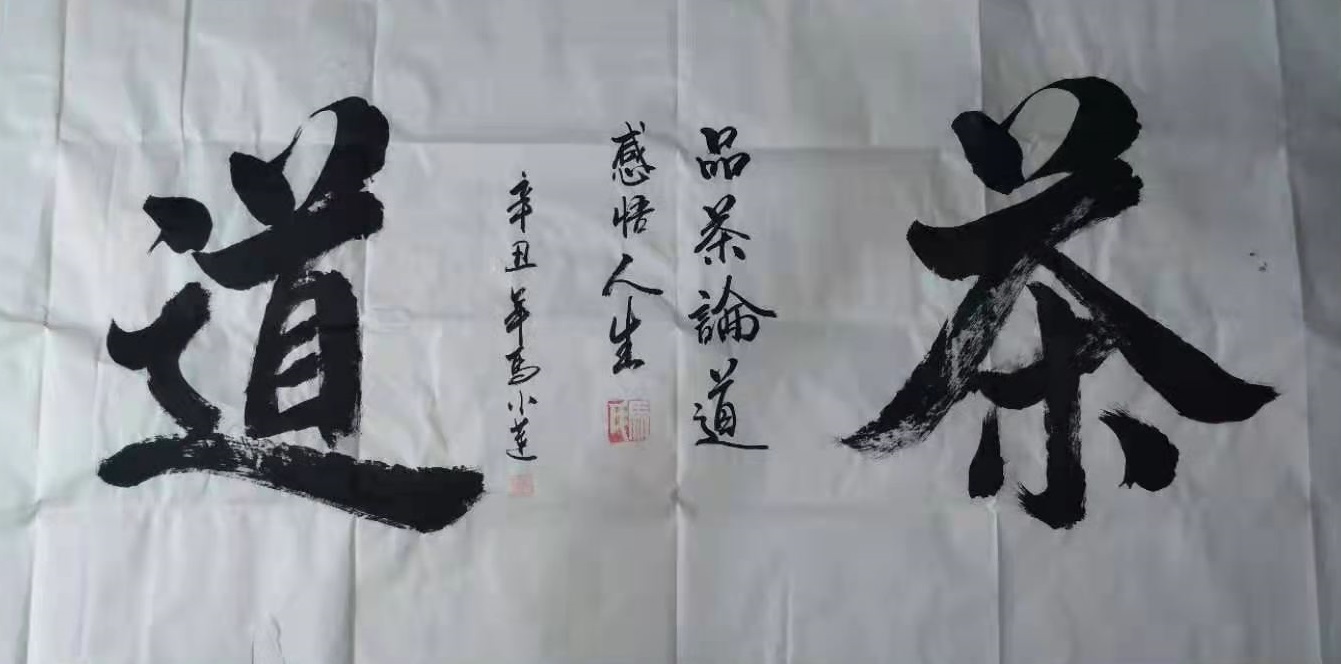 茶
品茶論道
感悟人生
辛丑年馬小蓮
道